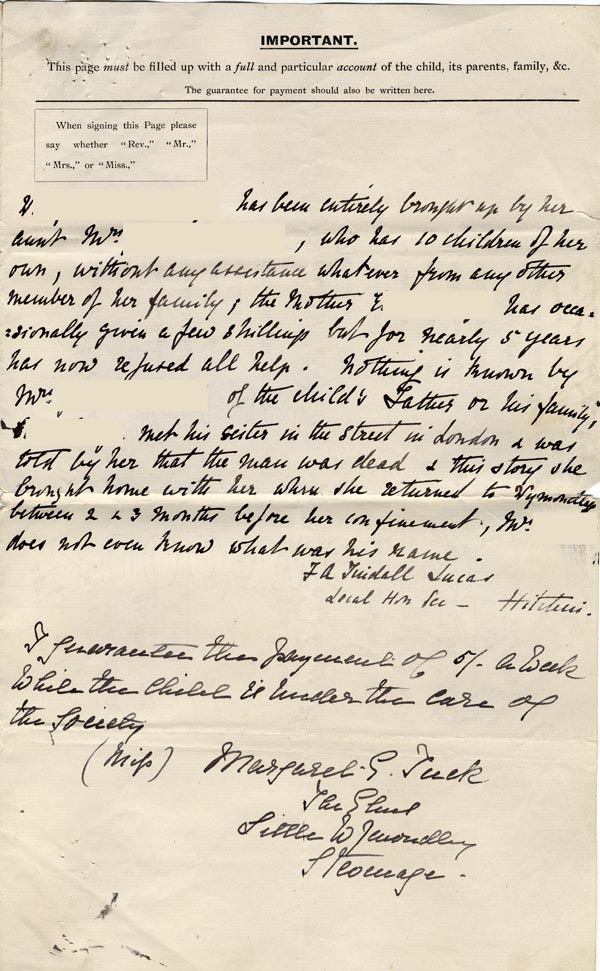 IMPORTANT.
This page must be filled up with a full and particular account of the child, its parents, family, &c.
The guarantee for payment should also be written here.
When signing this Page please
say whether "Rev.," "Mr.,"
"Mrs.," or "Miss.,"
has been entirely brought up by her
aunt Mrs , who has 10 children of her
own, without any assistance whatever from any other
member of her family; the Mother E. has occa=
=sionally given a few shillings but for nearly 5 years
has now refused all help. Nothing is known by
Mrs of the child's Father or his family;
E. met his sister in the street in London & was
told by her that the man was dead & this story she
brought home with her when she returned to Wymondley
between 2 & 3 months before her confinement; Mrs
does not even know what was his name.
F A Tindall Lucas
Local Hon Sec — Hitchin.
I guarantee the payment of 5/- a week
while the child is under the care of
the Society
(Miss) Margaret G. Tuck
The Elms
Little Wymondley
Stevenage.